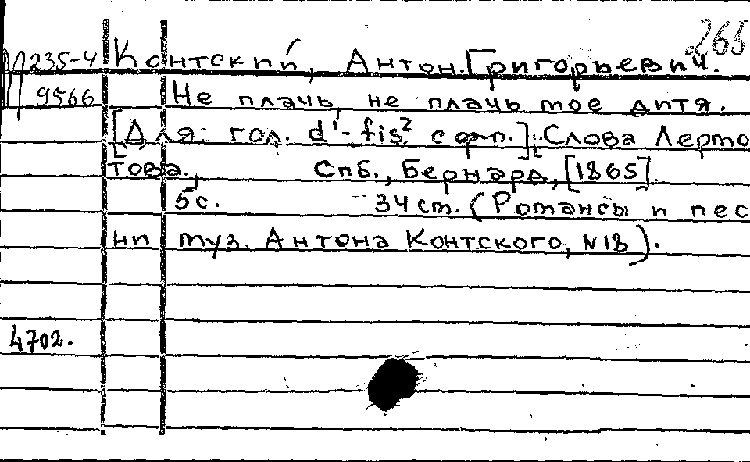 265
235-4 Контский, Антон Григорьевич.
9566 Не плачь, не плачь мое дитя.
[Для гол. d¹-fis² с фп.]. [Слова Лермо
това.], Спб., Бернард, [1865].
5с. 34 cm. (Романсы и пес
ни муз. Антона Контского, №18).
4702.